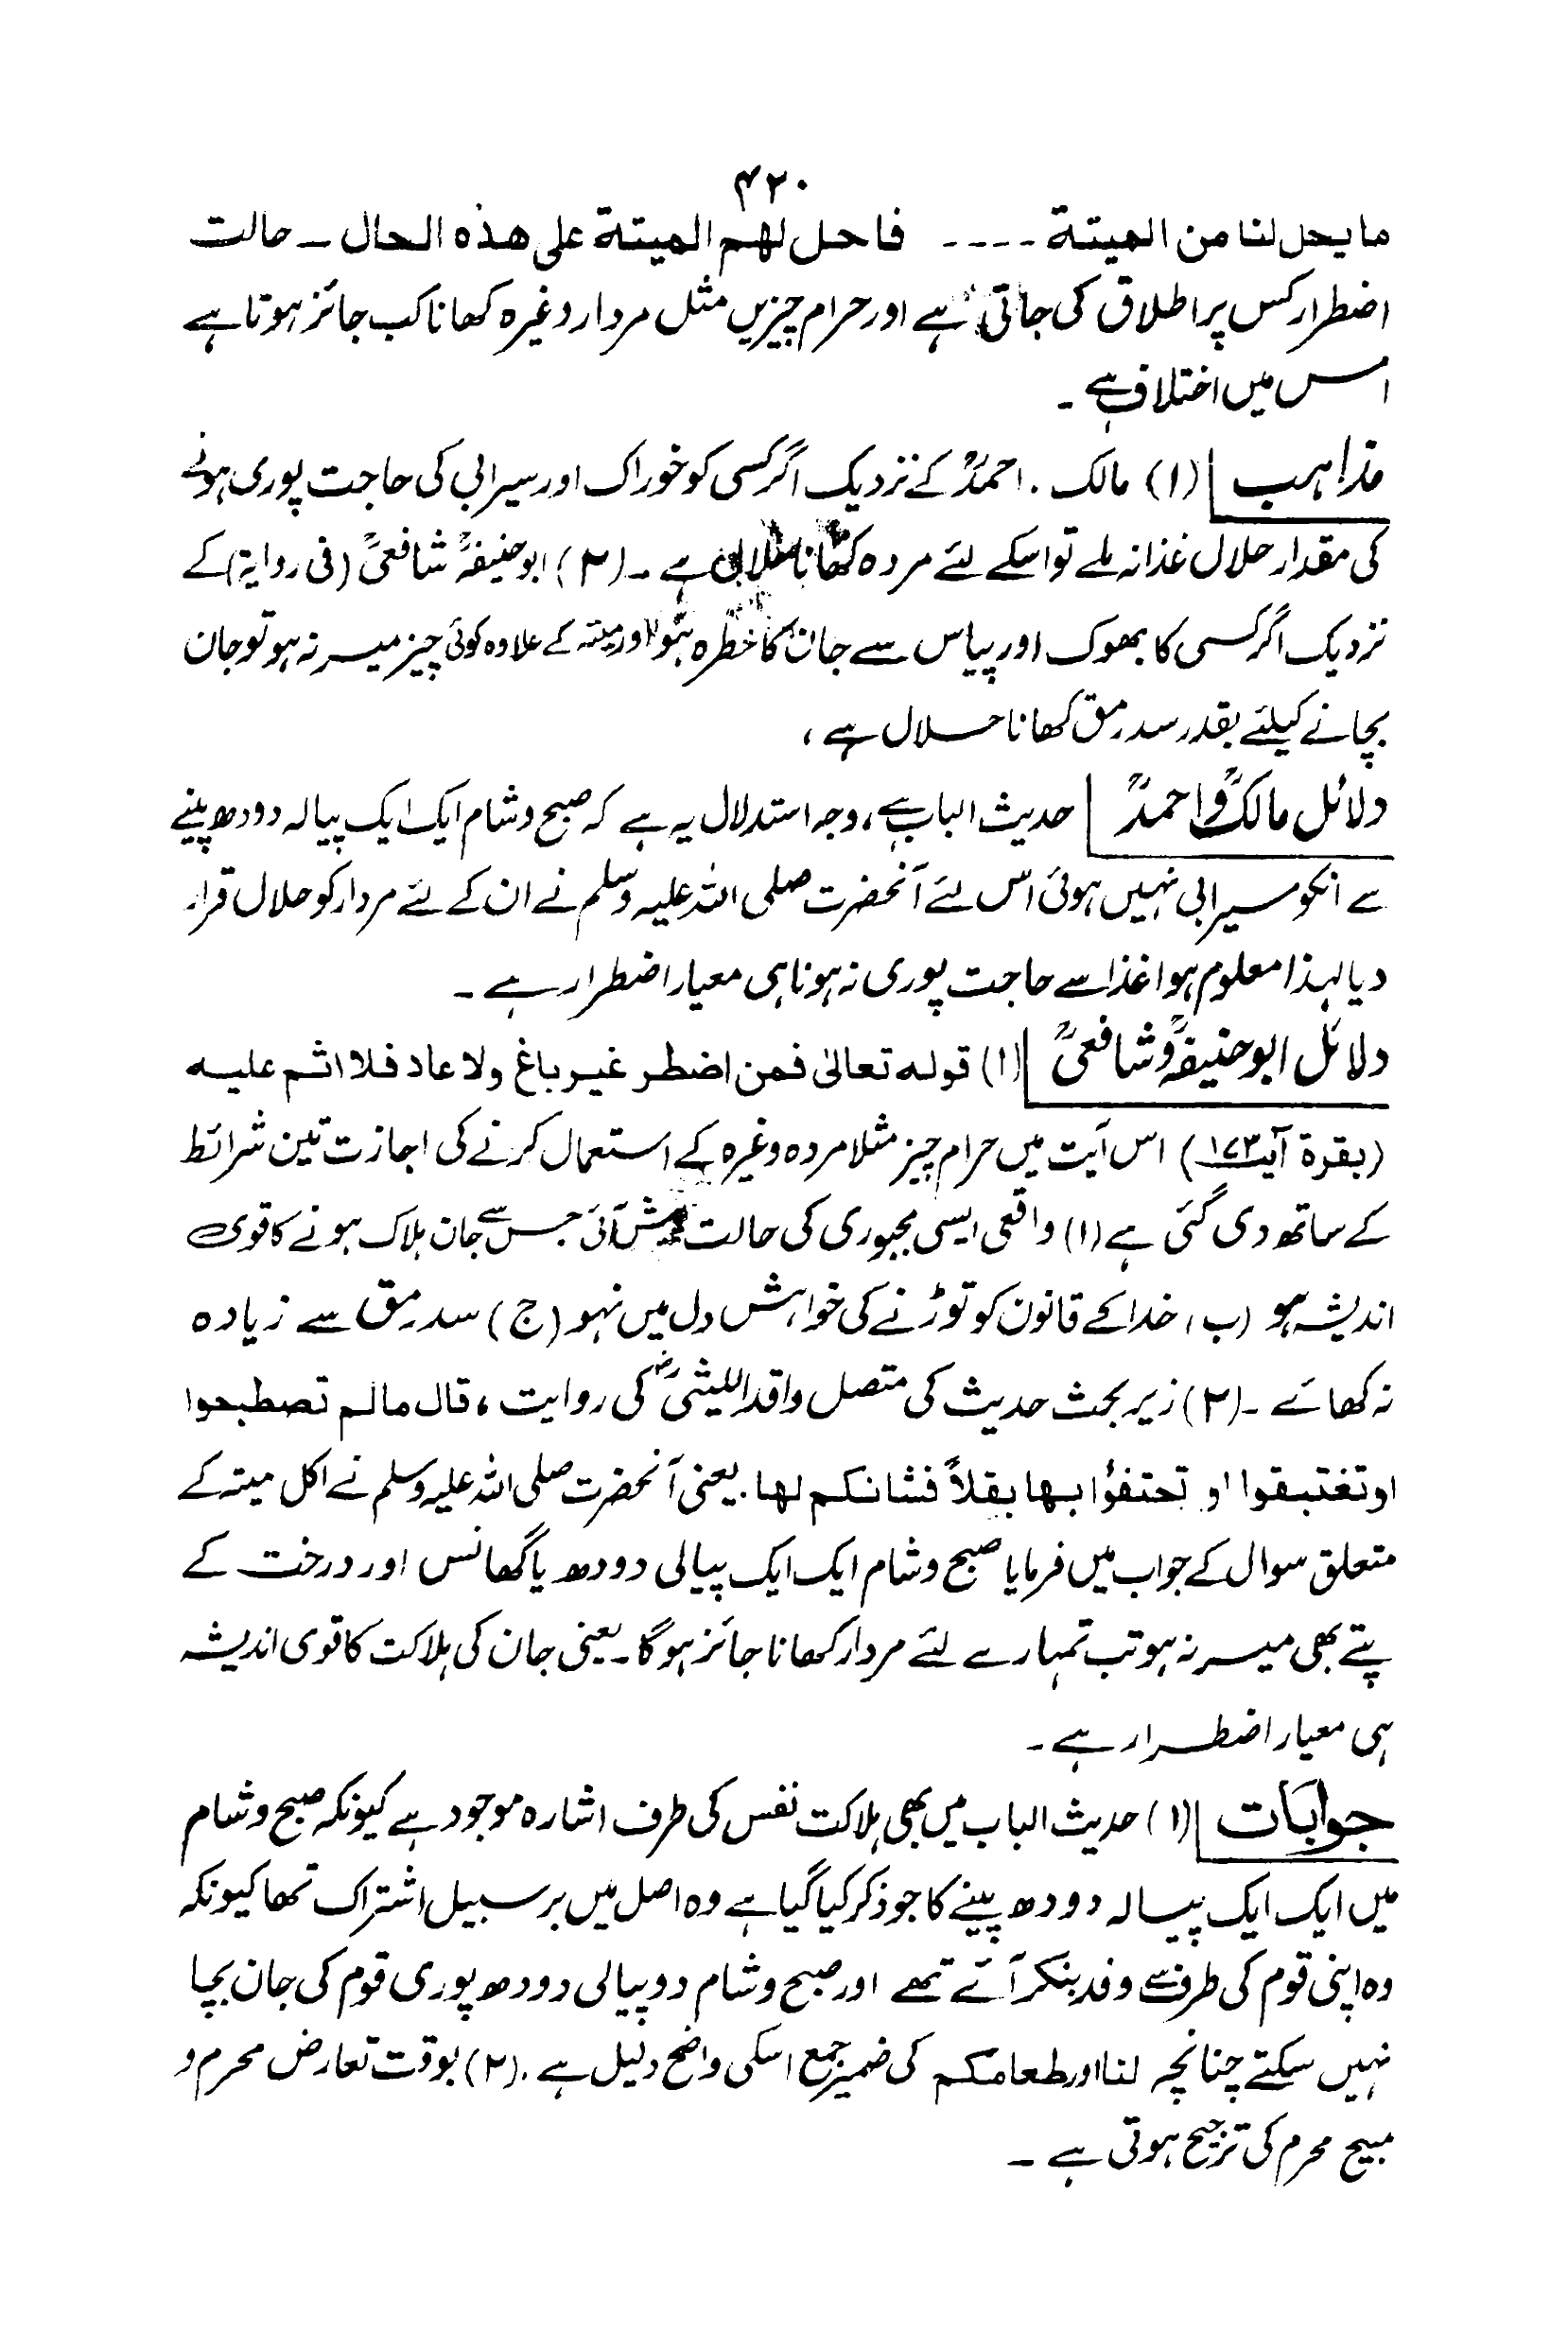 ۴۲۰
ما یحل لنا من المیتۃ ۔۔۔۔ فاحل لھم المیتۃ علی ھذہ الحال ــ حالت
اضطرار کس پر اطلاق کی جاتی ہے اور حرام چیزیں مثل مردار وغیرہ کھانا کب جائز ہوتا ہے
اس میں اختلاف ہے ۔
مذاہب (۱) مالک ۔ احمدؒ کے نزدیک اگر کسی کو خوراک اور سیرابی کی حاجت پوری ہونے
کی مقدار حلال غذا نہ ملے تو اسکے لئے مردہ کھانا حلال ہے ۔ (۲) ابوحنیفہؒ شافعیؒ (فی روایۃ) کے
نزدیک اگر کسی کا بھوک اور پیاس سے جان کا خطرہ ہو اور میتہ کے علاوہ کوئی چیز میسر نہ ہو تو جان
بچانے کیلئے بقدر سدرمق کھانا حلال ہے ،
دلائل مالکؒ و احمدؒ حدیث الباب ہے، وجہ استدلال یہ ہے کہ صبح وشام ایک ایک پیالہ دودھ پینے
سے انکو سیرابی نہیں ہوئی اس لئے آنحضرت صلی اللہ علیہ وسلم نے ان کے لئے مردار کو حلال قرار
دیا لہذا معلوم ہوا غذا سے حاجت پوری نہ ہونا ہی معیار اضطرار ہے ۔
دلائل ابوحنیفہؒ و شافعیؒ (۱) قولہ تعالیٰ فمن اضطر غیر باغ ولا عاد فلا اثم علیہ
(بقرۃ آیت ۱۷۳) اس آیت میں حرام چیز مثلا مردہ وغیرہ کے استعمال کرنے کی اجازت تین شرائط
کے ساتھ دی گئی ہے (۱) واقعی ایسی مجبوری کی حالت پیش آئی جس سے جان ہلاک ہونے کا قوی
اندیشہ ہو (ب) خدا کے قانون کو توڑنے کی خواہش دل میں نہو (ج) سدرمق سے زیادہ
نہ کھائے ۔(۲) زیر بحث حدیث کی متصل واقد اللیثیؓ کی روایت ، قال مالم تصطبحوا
او تغتبقوا او تحتفؤا بھا بقلاً فشانکم لھا۔ یعنی آنحضرت صلی اللہ علیہ وسلم نے اکل میتہ کے
متعلق سوال کے جواب میں فرمایا صبح وشام ایک ایک پیالی دودھ یا گھانس اور درخت کے
پتے بھی میسر نہ ہو تب تمہارے لئے مردار کھانا جائز ہوگا۔ یعنی جان کی ہلاکت کا قوی اندیشہ
ہی معیار اضطرار ہے ۔
جوابات (۱) حدیث الباب میں بھی ہلاکت نفس کی طرف اشارہ موجود ہے کیونکہ صبح وشام
میں ایک ایک پیالہ دودھ پینے کا جو ذکر کیا گیا ہے وہ اصل میں برسبیل اشتراک تھا کیونکہ
وہ اپنی قوم کی طرف سے وفد بنکر آئے تھے اور صبح وشام دو پیالی دودھ پوری قوم کی جان بچا
نہیں سکتے چنانچہ لنا اور طعامکم کی ضمیر جمع اسکی واضح دلیل ہے ۔(۲) بوقت تعارض محرم و
مبیح محرم کی ترجیح ہوتی ہے ۔